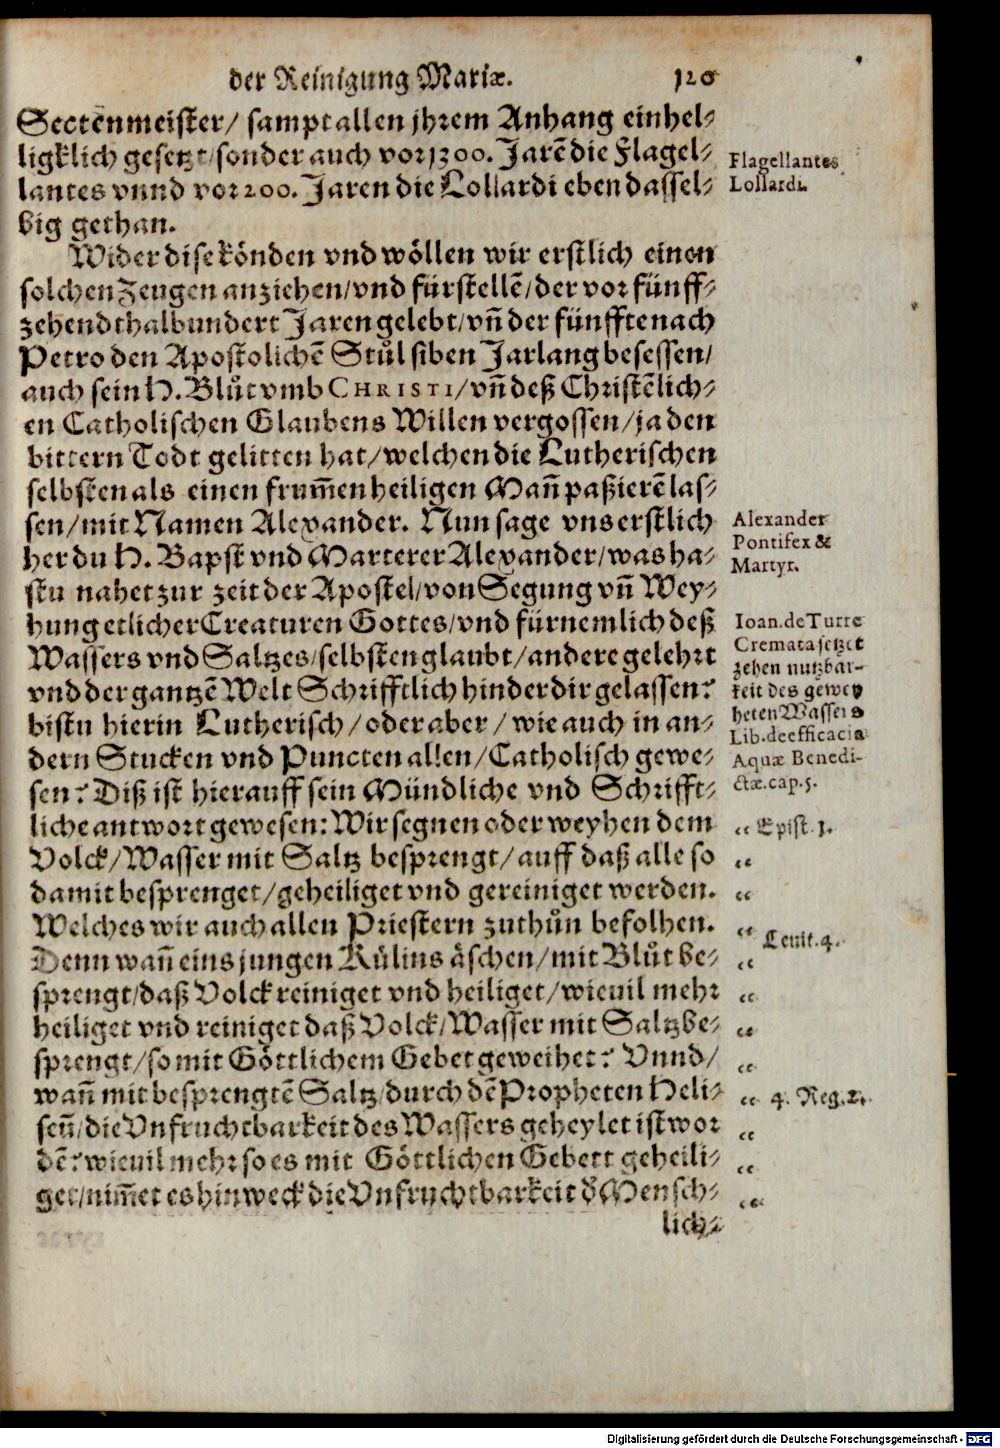 der Reinigung Mariæ. 120
Sectēnmeister/ sampt allen jhrem Anhang einhel-
ligklich gesetzt/ sonder auch vor 1300. Jarē die Flagel-
lantes vnnd vor 200. Jaren die Lollardi eben dassel-
big gethan.
Flagellantes
Lollardi.
Wider dise könden vnd wöllen wir erstlich einen
solchen Zeugen anziehen/ vnd fürstellē/ der vor fünff-
zehendthalbundert Jaren gelebt/ vñ der fünffte nach
Petro den Apostolichē Stůl siben Jarlang besessen/
auch sein H. Blůt vmb CHRISTI/ vñ deß Christēlich-
en Catholischen Glaubens Willen vergossen/ ja den
bittern Todt gelitten hat/ welchen die Lutherischen
selbsten als einen frum̃en heiligen Mañ paßierē las-
sen/ mit Namen Alexander. Nun sage vns erstlich
her du H. Bapst vnd Marterer Alexander/ was ha-
stu nahet zur zeit der Apostel/ von Segung vñ Wey-
hung etlicher Creaturen Gottes/ vnd fürnemlich deß
Wassers vnd Saltzes/ selbsten glaubt/ andere gelehrt
vnd der gantzē Welt Schrifftlich hinder dir gelassen?
bistu hierin Lutherisch/ oder aber/ wie auch in an-
dern Stucken vnd Puncten allen/ Catholisch gewe-
sen? Diß ist hierauff sein Mündliche vnd Schrifft-
liche antwort gewesen: Wir segnen oder weyhen dem
Volck/ Wasser mit Saltz besprengt/ auff daß alle so
damit besprenget/ geheiliget vnd gereiniget werden.
Welches wir auch allen Priestern zuthůn befolhen.
Denn wañ eins jungen Külins äschen/ mit Blůt be-
sprengt/ daß Volck reiniget vnd heiliget/ wieuil mehr
heiliget vnd reiniget daß Volck/ Wasser mit Saltz be-
sprengt/ so mit Göttlichem Gebet geweihet? Vnnd/
wañ mit besprengtē Saltz/ durch dē Propheten Heli-
seū/ die Vnfruchtbarkeit des Wassers geheylet ist wor
dē? wieuil mehr so es mit Göttlichen Gebett geheili-
get/ nim̃et es hinweck die Vnfruchtbarkeit d̕ Mensch-
lich-
Alexander
Pontifex &
Martyr.
Ioan. de Turre
Cremata setzet
zehen nutzbar-
keit des gewey
heten Wassers
Lib. de efficacia
Aquæ Benedi-
ctæ. cap. 5.
“ Epist. 1.
“
“
“ Leuit. 4.
“
“
“
“
“ 4. Reg. 2.
“
“
“
Digitalisierung gefördert durch die Deutsche Forschungsgemeinschaft - DFG